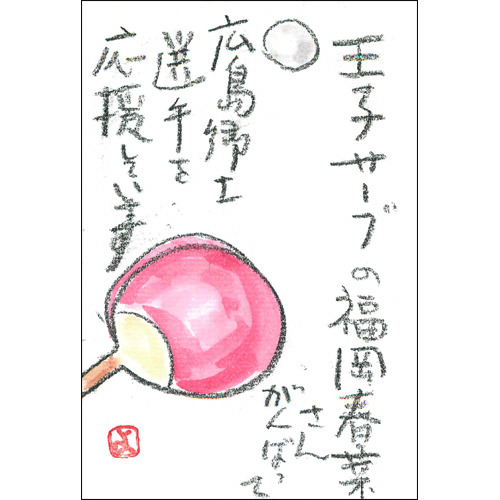 王子サーブの福岡春菜
さん
がんばって
広島郷土
選手を
応援しています